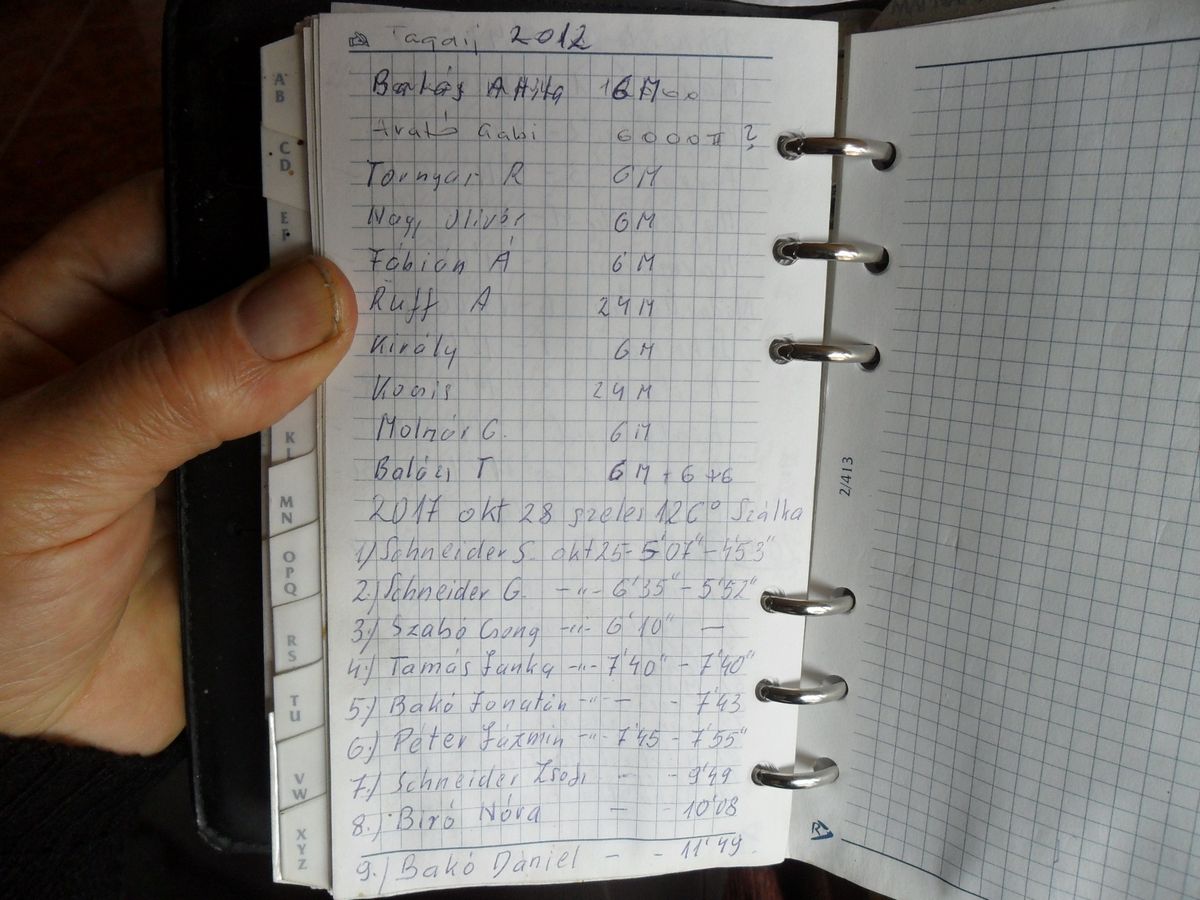 Tagdíj 2012
Bakos Attila
Arató Gabi 6000 Ft ?
Tornyai R 6 M
Nagy Olivér 6 M
Fábián Á 6 M
Ruff A 24 M
Király 6 M
Kocsis 24 M
Molnár G. 6 M
Balázs T 6 M + 6 + 6
2017 okt 28 szeles 12 C° Szálka
1.) Schneider S. okt 25 - 5'07" - 4'53"
2.) Schneider G. -"- 6'35" - 5'52"
3.) Szabó Csong -"- 6'10" —
4.) Tamás Janka -"- 7'40" - 7'40"
5.) Bakó Jonatán -"- — - 7'43
6.) Péter Jázmin -"- 7'45 - 7'55"
7.) Schneider Zsofi — - 9'49
8.) Biró Nóra — - 10'08
9.) Bakó Dániel — - 11'49
AB
CD
EF
KL
MN
OPQ
RS
TU
VW
XYZ
2/413